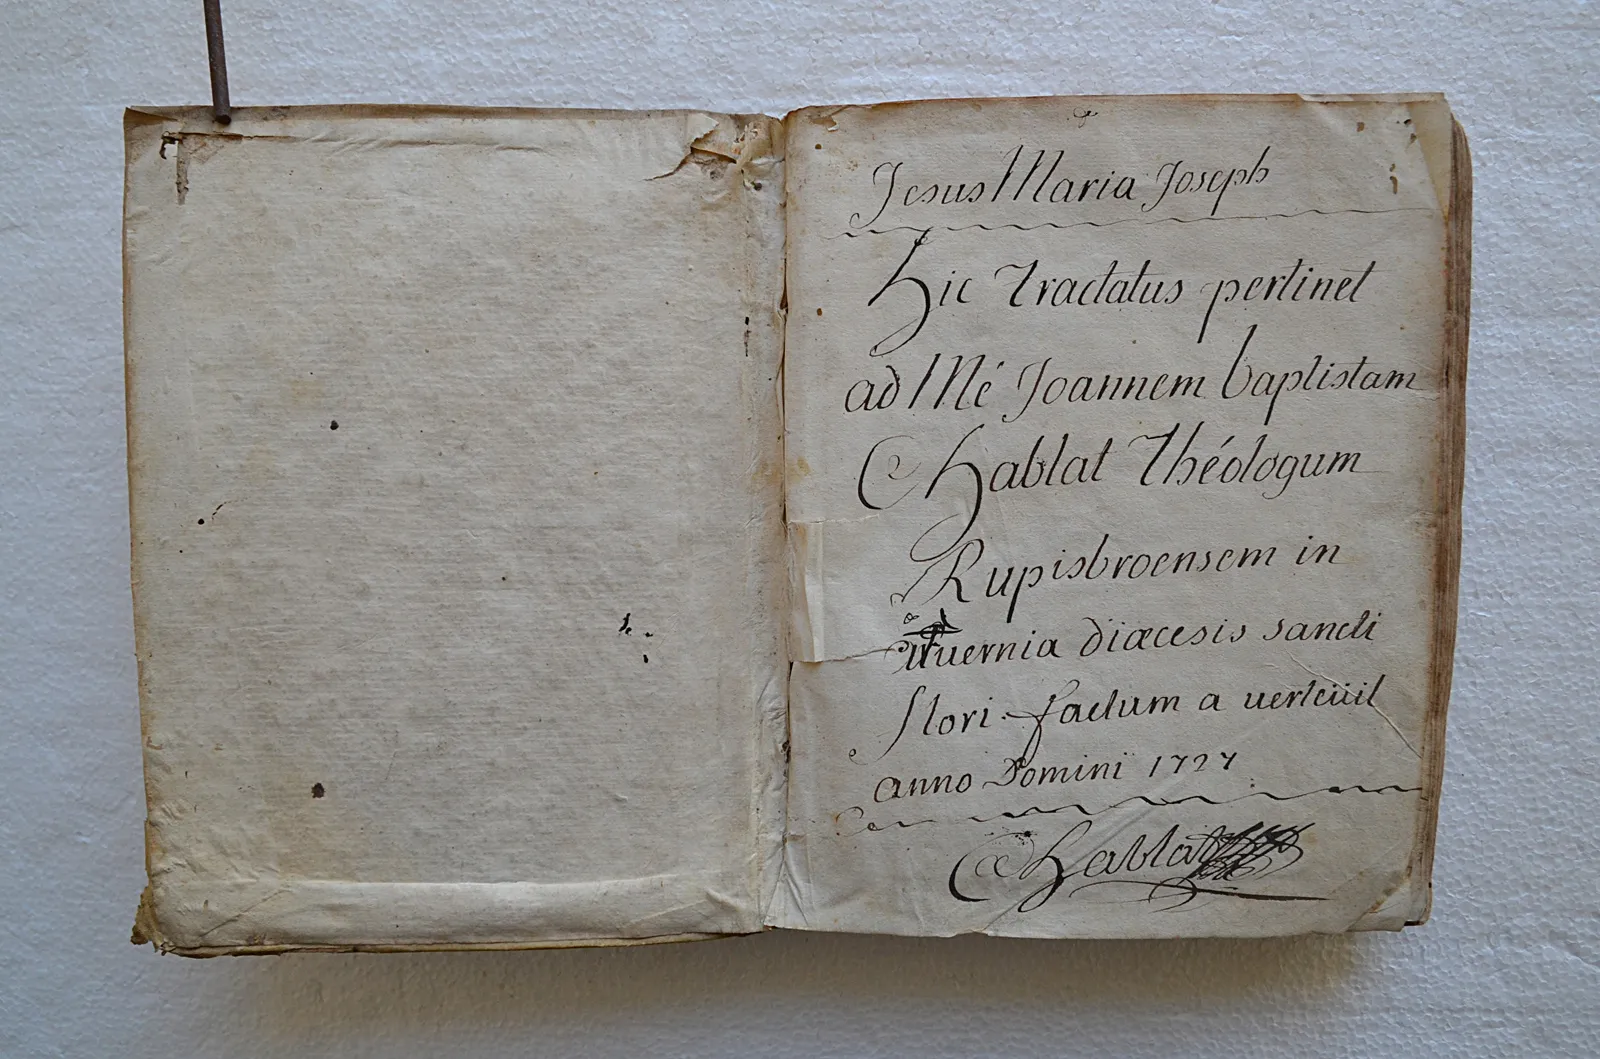 Jesus Maria Joseph
hic Tractatus pertinet
ad Mé Joannem baptistam
Chablat Théologum
Rupisbroensem in
Auernia diœcesis sancti
flori factum a uerteüil
anno Domini 1727
Chablat